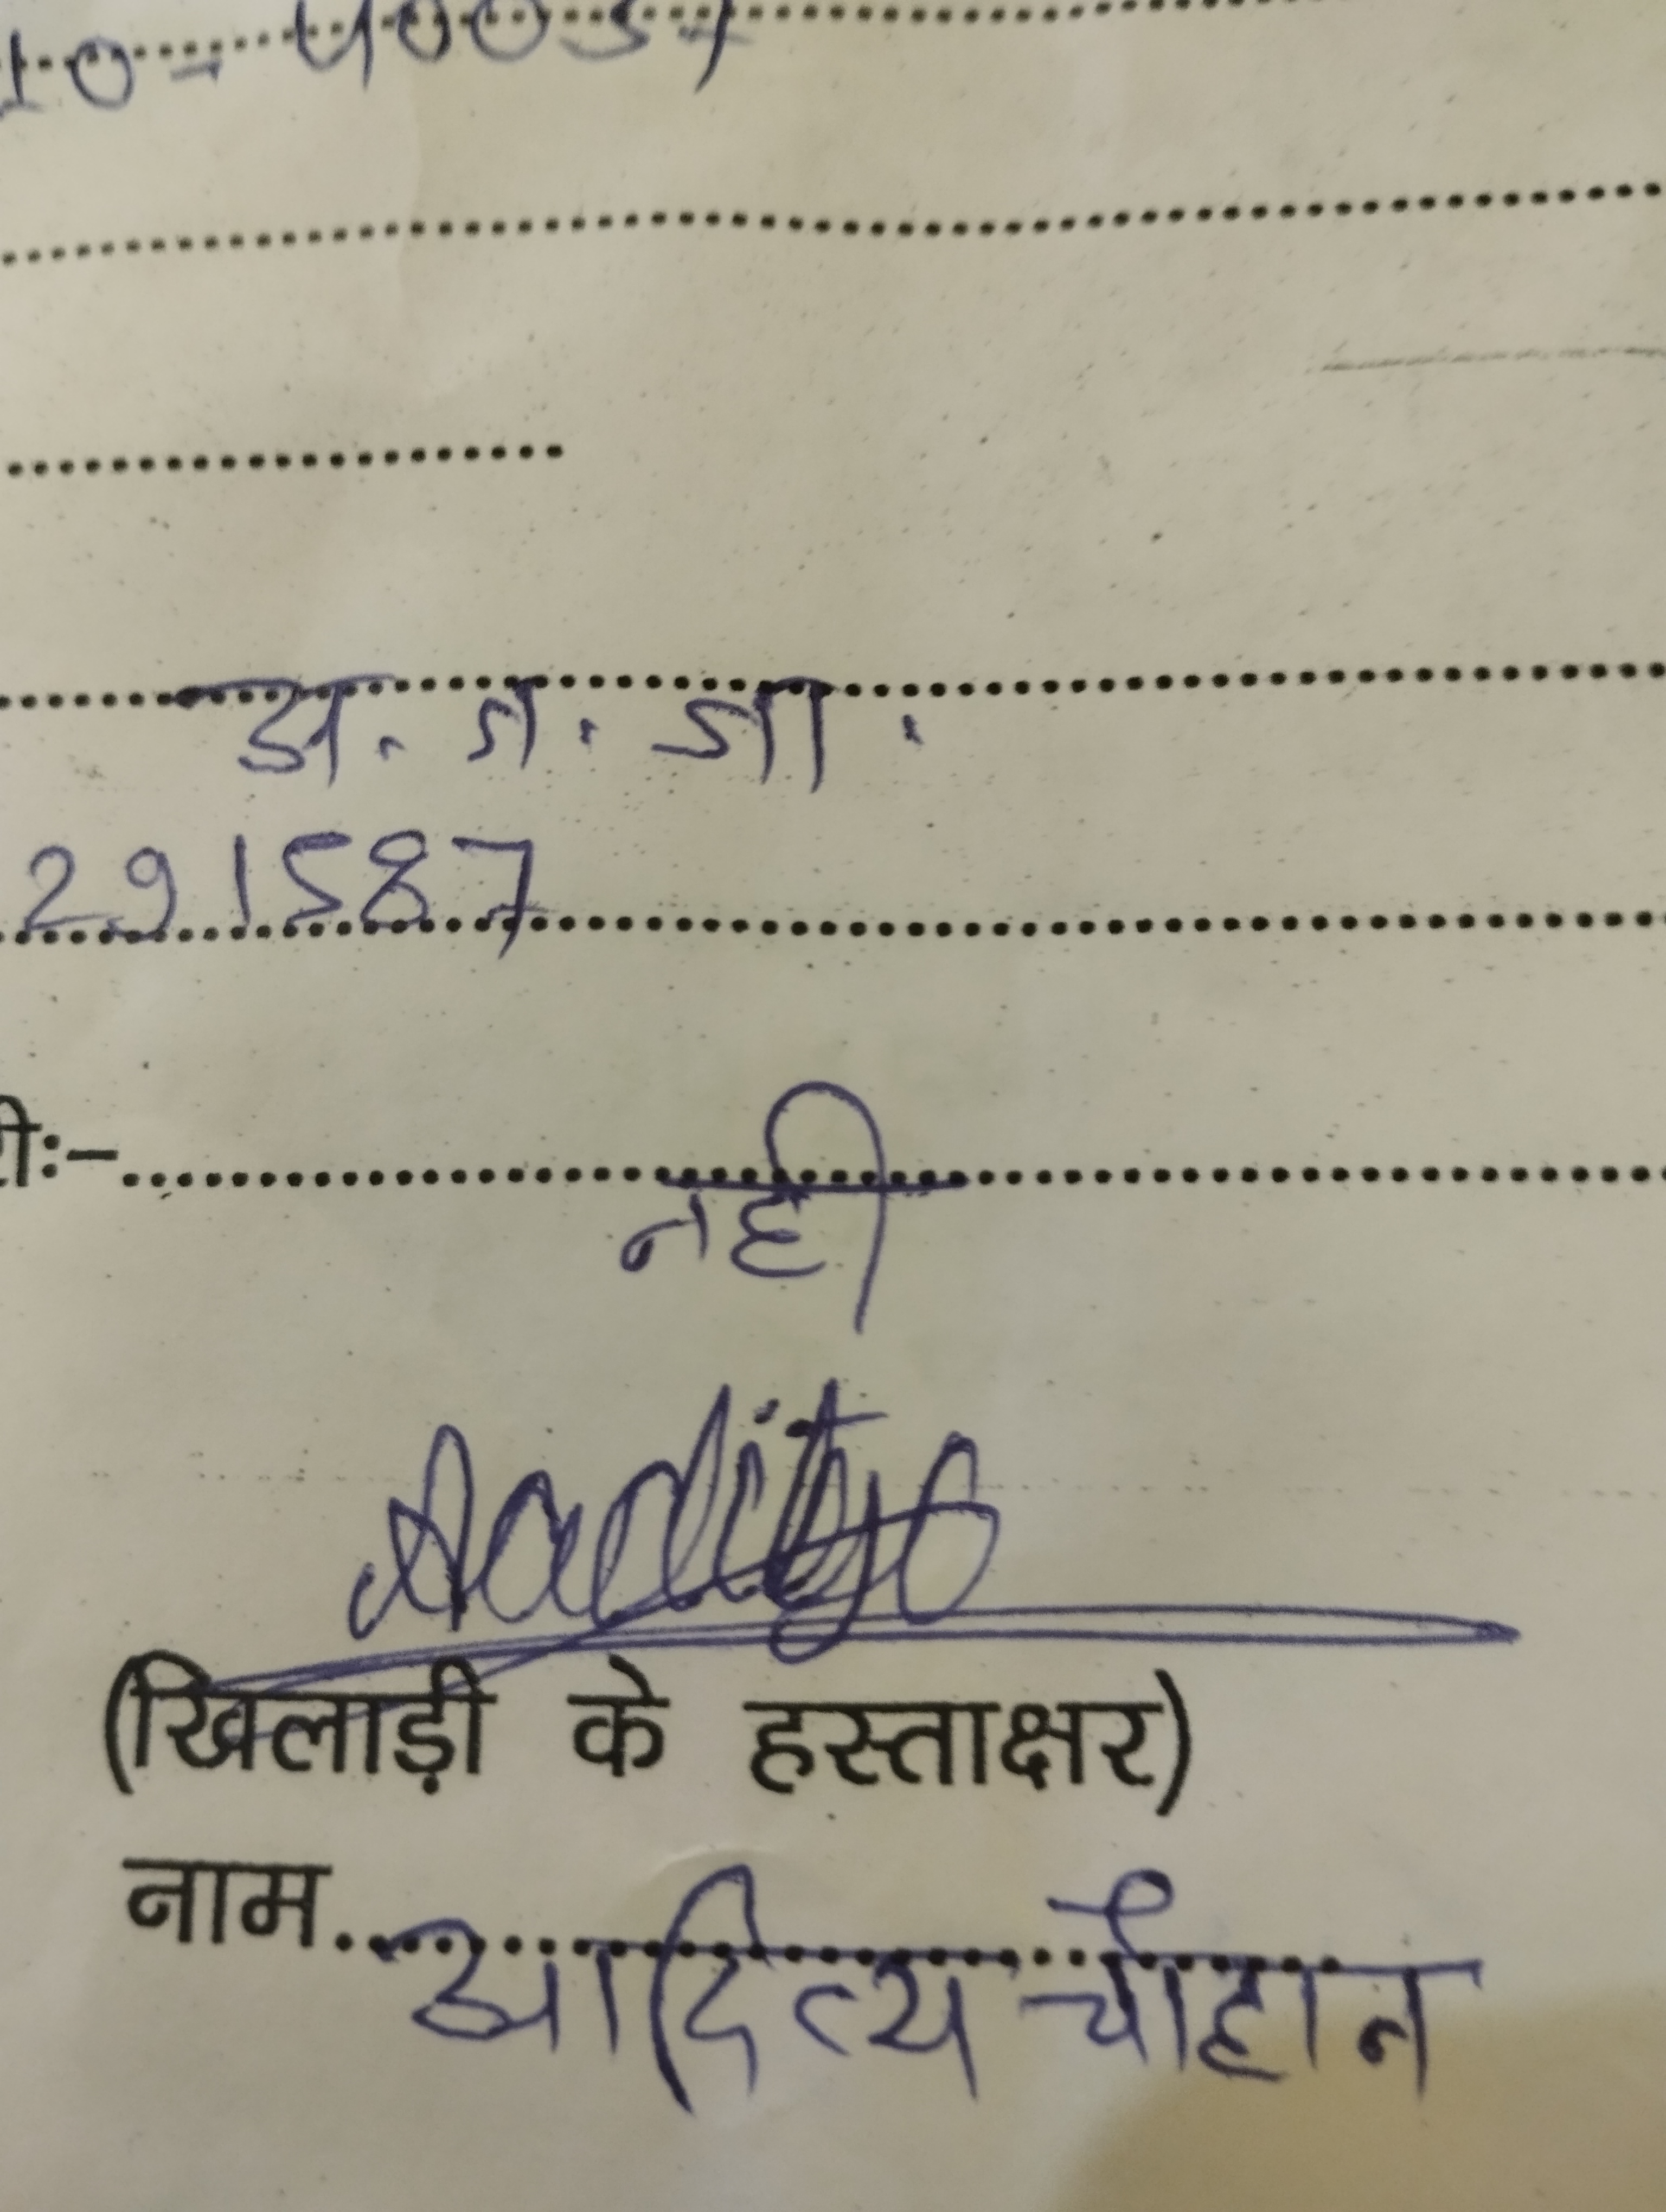 अ. ज. जा.
291587
रीः–....................नही
Aaditya
(खिलाड़ी के हस्ताक्षर)
नाम....आदित्य चौहान